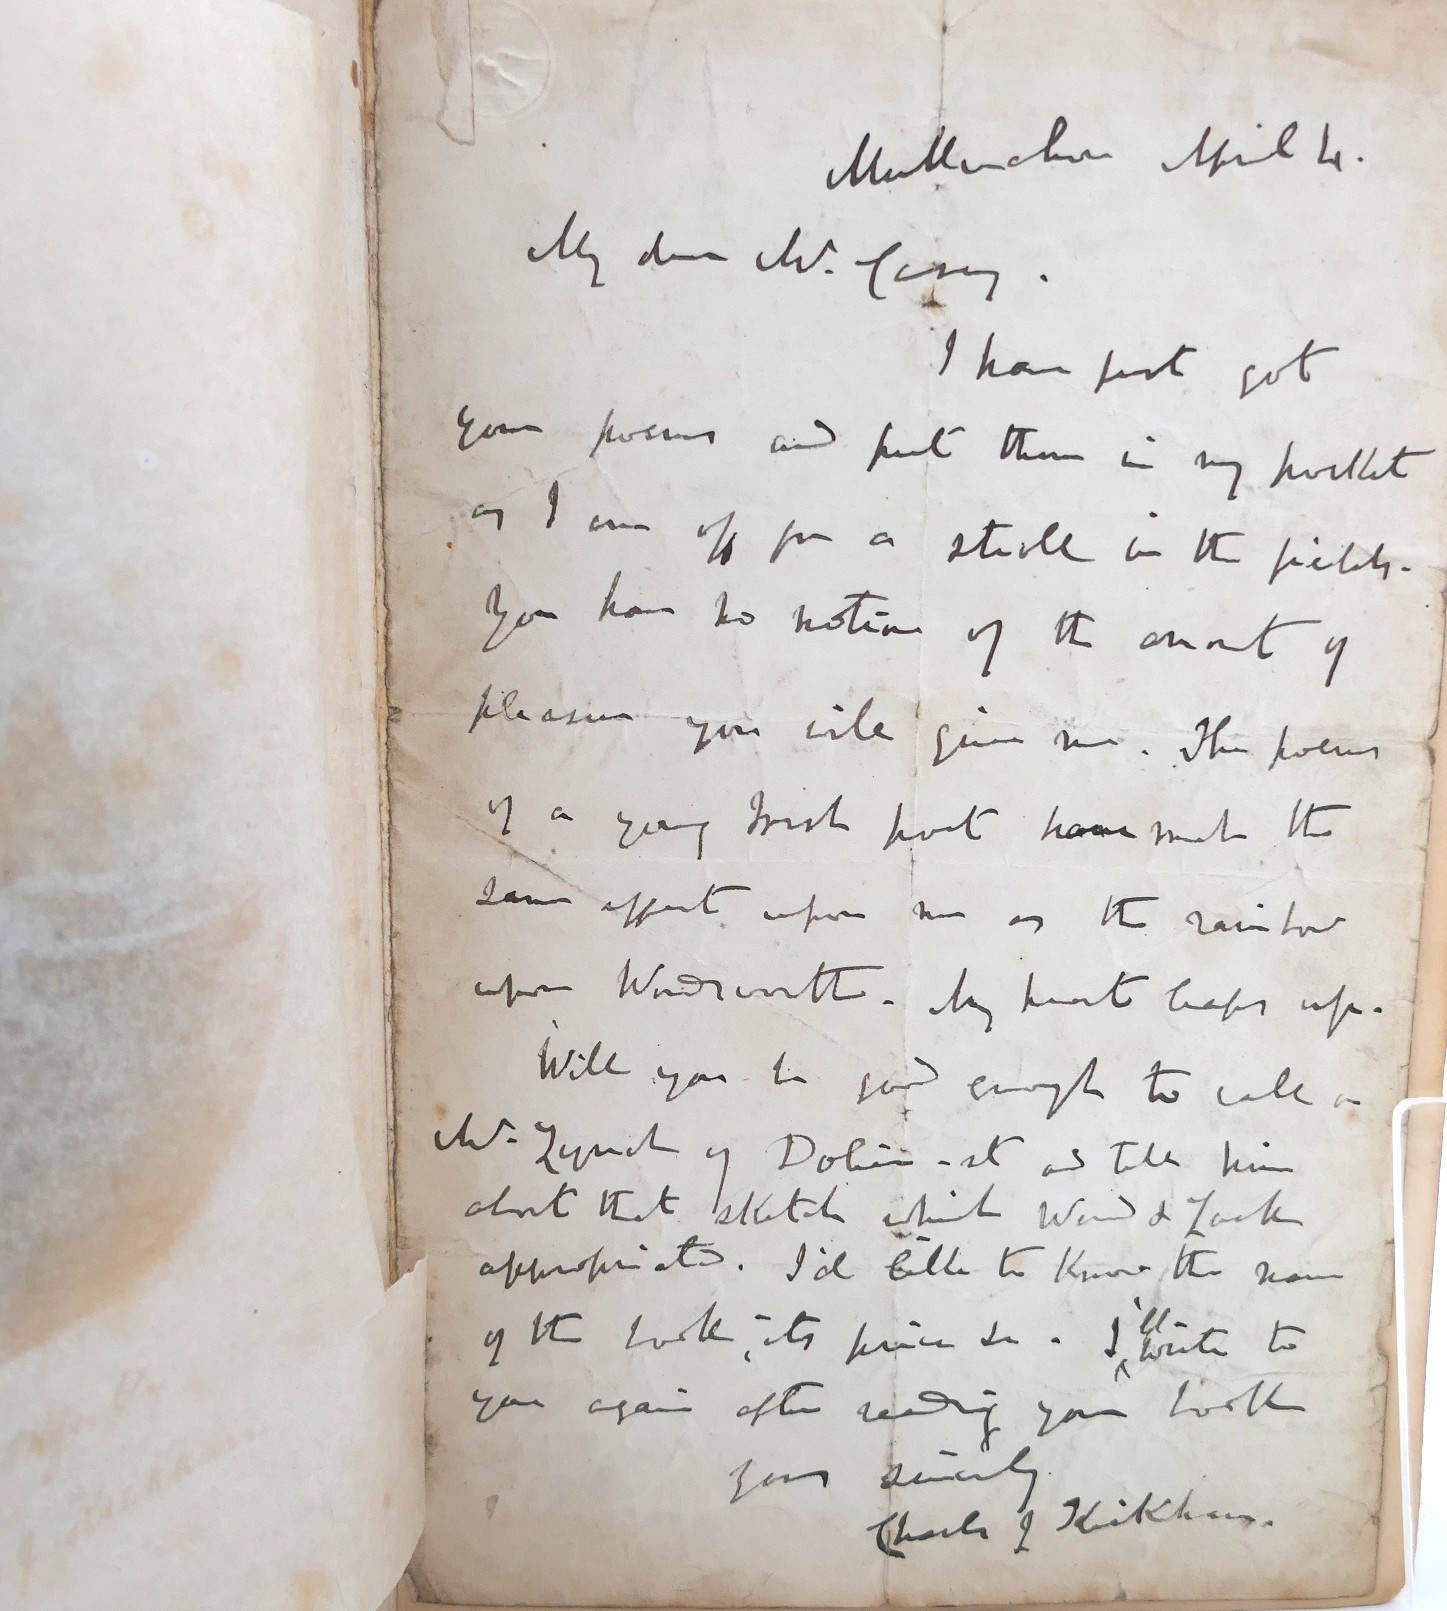 Mullinahone April 4.
My dear Mr. Casey.
I have just got
your poems and put them in my pocket
as I am off for a stroll in the fields.
You have no notion of the amount of
pleasure you will give me. The poems
of a young Irish poet have much the
same effect upon me as the rainbow
upon Wordsworth. My heart leaps up.
Will you be good enough to call on
Mr. Lynch of Dolier-st and tell him
about that sketch which Wood & Zach
appropriated. I'd like to know the name
of the book, its price &c. I'll write to
you again after reading your book
yours sincerely
Charles J Kickham.